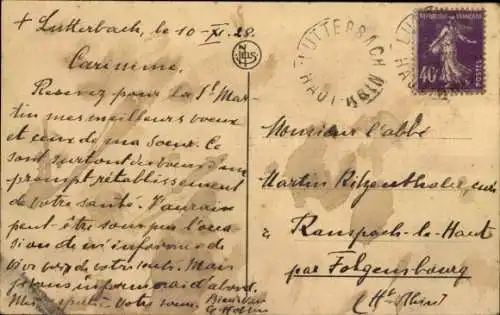 + Lutterbach, le 10-XI.28.
Carissime,
Recevez pour la St Mar-
tin mes meilleurs voeux
et ceux de ma soeur. Ce
sont surtout des voeux d'un
prompt rétablissement
de votre santé. J'aurais
peut-être sous peu l'occa-
sion de m'informer de
vive voix de votre santé. Mais
je vous informerai d'abord.
votre soeur.
LUTTERBACH
HAUT-RHIN
REPUBLIQUE FRANÇAISE
40c
POSTES
Monsieur l'abbé
Martin Ritzenthaler, curé
à Ranspach-le-Haut
par Folgensbourg
(Ht Rhin)